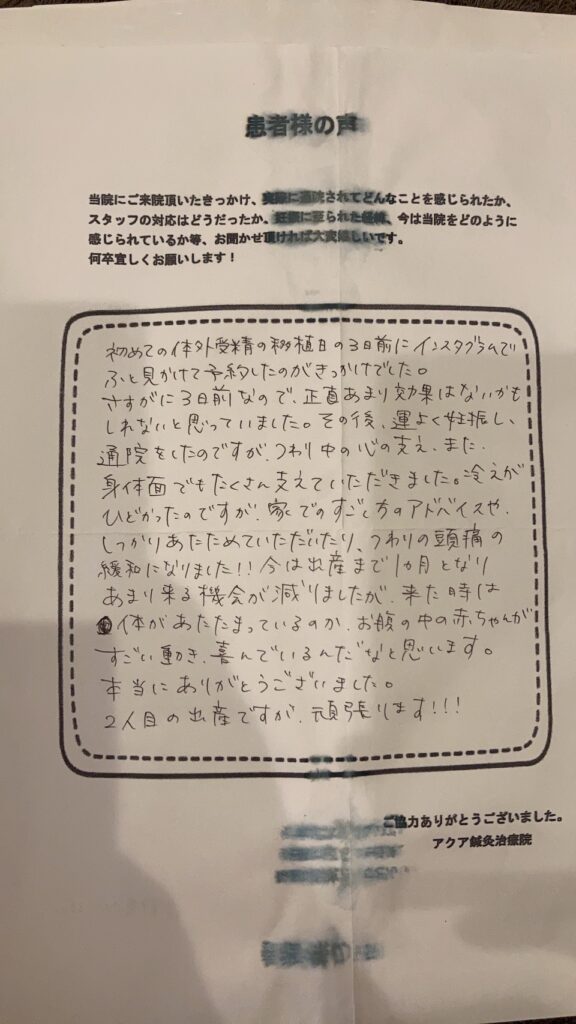 患者様の声
当院にご来院頂いたきっかけ、実際に通院されてどんなことを感じられたか、
スタッフの対応はどうだったか、妊娠に至られた経緯、今は当院をどのように
感じられているか等、お聞かせ頂ければ大変嬉しいです。
何卒宜しくお願いします！
初めての体外受精の移植日の3日前にインスタグラムで
ふと見かけて予約したのがきっかけでした。
さすがに3日前なので、正直あまり効果はないかも
しれないと思っていました。その後、運よく妊娠し、
通院をしたのですが、つわり中の心の支え、また、
身体面でもたくさん支えていただきました。冷えが
ひどかったのですが、家でのすごし方のアドバイスや、
しっかりあたためていただいたり、つわりの頭痛の
緩和になりました!! 今は出産まで1ヵ月となり
あまり来る機会が減りましたが、来た時は
体があたたまっているのか、お腹の中の赤ちゃんが
すごい動き、喜んでいるんだなと思います。
本当にありがとうございました。
2人目の出産ですが、頑張ります!!!
ご協力ありがとうございました。
アクア鍼灸治療院